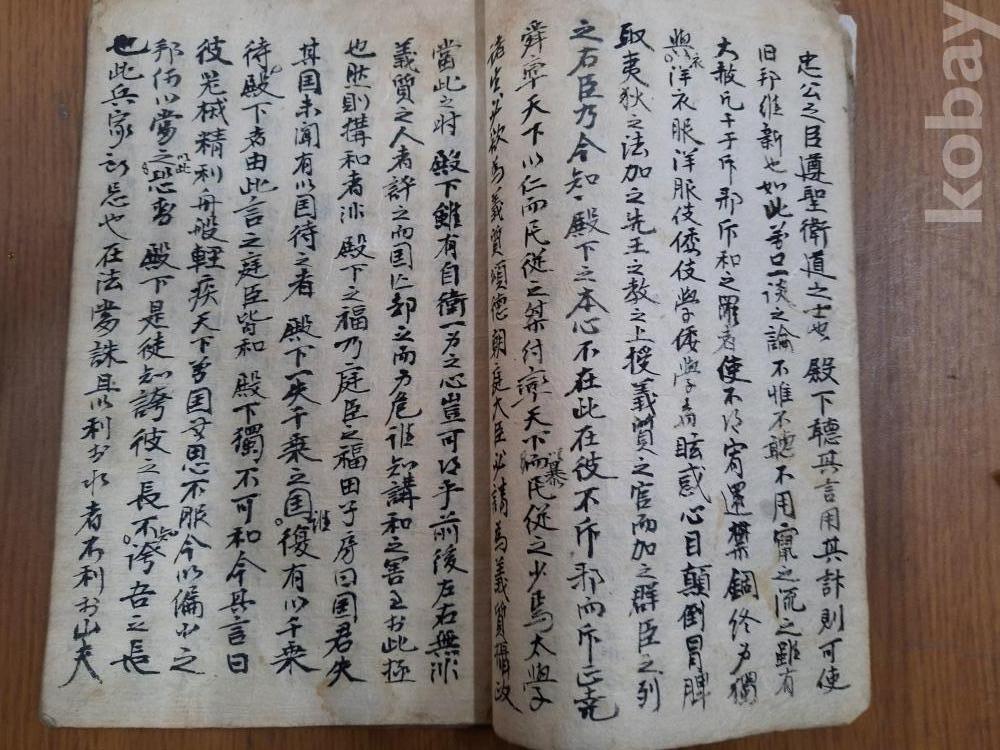 忠公之臣遵聖衛道之士也 殿下聽其言用其計則可使
旧邦維新也如此萬口一談之論不惟不聽不用竄之流之雖有
大赦凡干于斥邪斥和之罪者使不得宥還禁錮終乃獨
與洋衣服洋服伎倭伎學倭學者眩惑心目顛倒冒脾
衣
取夷狄之法加之先王之教之上授義質之官而加之群臣之列
之右臣乃今知 殿下之本心不在此在彼不斥邪而斥正堯
舜率天下以仁而民從之桀紂率天下而民從之少焉太學
以暴
諸生必欲為義質頌德朝庭大臣必請為義質攝政
當此之时 殿下雖有自衛一方之心豈可得乎前後左右無非
義質之人者許之而国亡却之而乃危誰知講和之害至於此極
也然則搆和者非 殿下之福乃庭臣之福田子房曰国君失
其国未聞有以国待之者 殿下一失千乗之国復有以千乗
誰
待殿下者由此言之庭臣皆和 殿下獨不可和今其言曰
彼器械精利舟般軽疾天下萬国無思不服今以偏小之
邦何以當之恐喝 殿下是徒知誇彼之長不誇吾之長
以此
知
也此兵家所忌也在法當誅且以利於水者不利於山夫
kobay